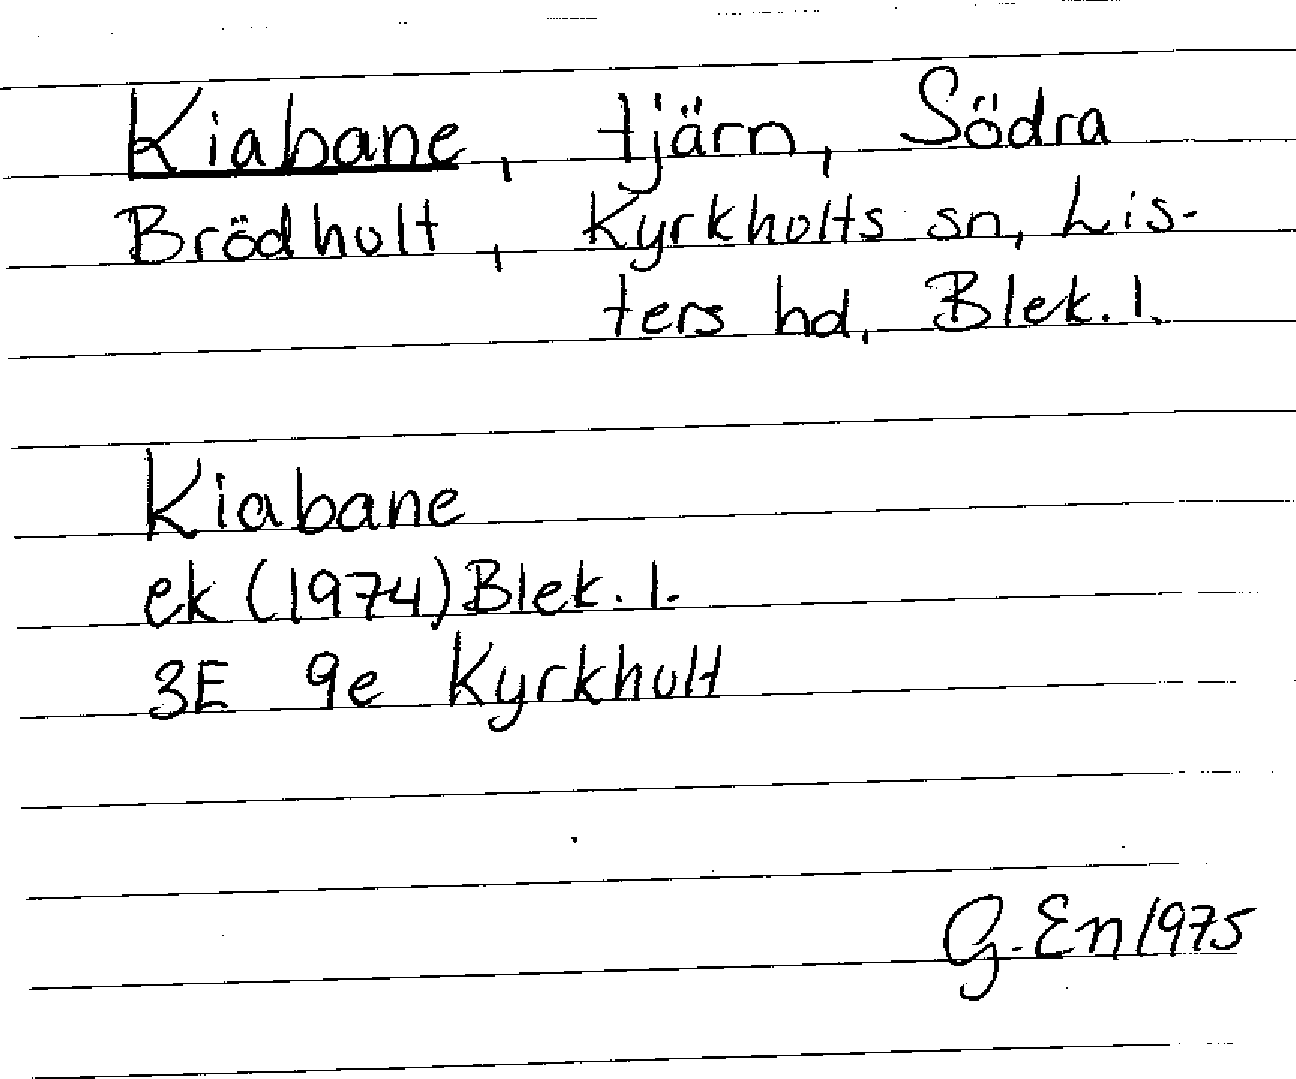 Kiabane, tjärn, Södra
Brödhult, Kyrkhults sn, Lis-
ters hd, Blek. l.
Kiabane
ek (1974) Blek. l.
3E 9e Kyrkhult
G. En 1975